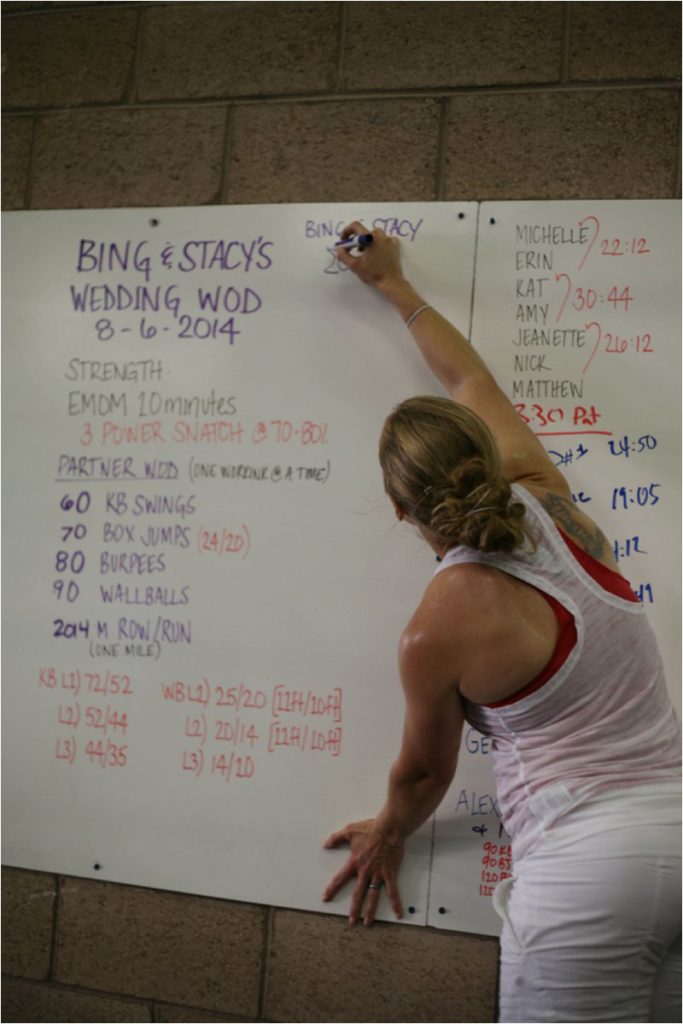 BING & STACY'S
WEDDING WOD
8-6-2014
STRENGTH:
EMOM 10 minutes
3 POWER SNATCH @ 70-80%
PARTNER WOD (ONE WORKING @ A TIME)
60 KB SWINGS
70 BOX JUMPS (24/20)
80 BURPEES
90 WALLBALLS
2014 M ROW/RUN
(ONE MILE)
KB L1) 72/52
L2) 52/44
L3) 44/35
WB L1) 25/20 [11ft/10ft]
L2) 20/14 [11ft/10ft]
L3) 14/10
BING & STACY
MICHELLE
ERIN
22:12
KAT
AMY
30:44
JEANETTE
NICK
26:12
MATTHEW
3:30 
24:50
19:05
GE
ALEX
&